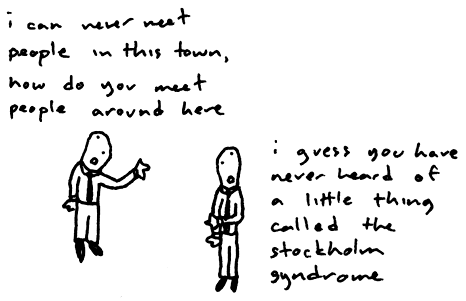 i can never meet
people in this town,
how do you meet
people around here
i guess you have
never heard of
a little thing
called the
stockholm
syndrome